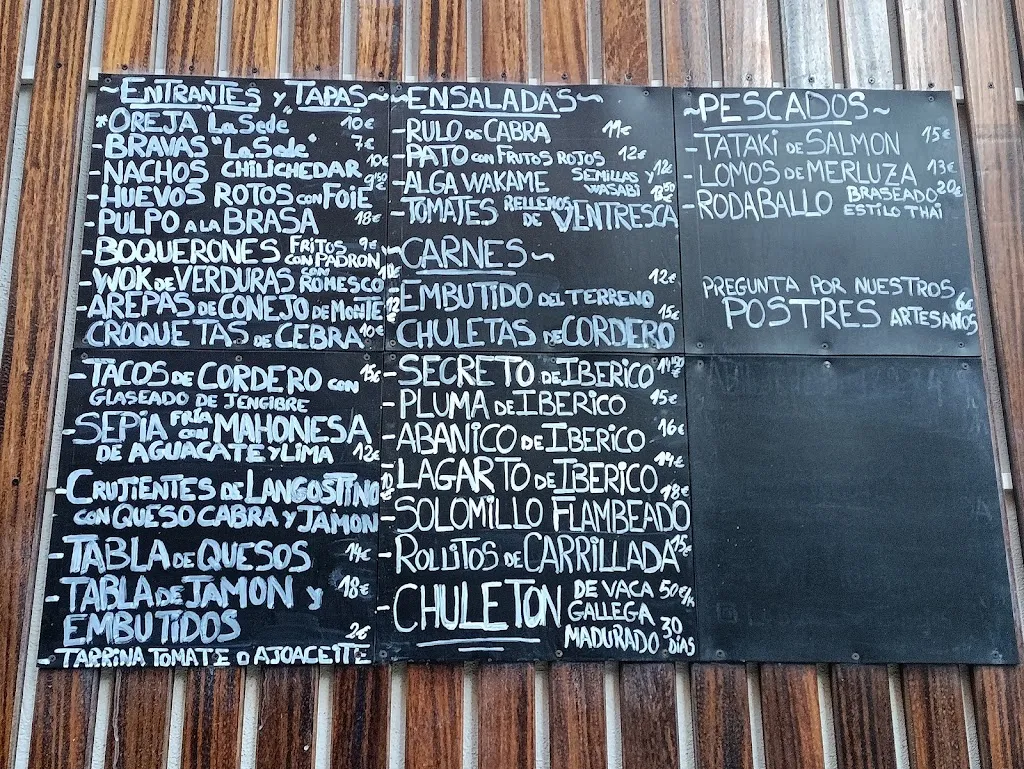 ~ENTRANTES y TAPAS~
*OREJA "La Sede" 10€
-BRAVAS "La Sede" 7€
-NACHOS CHILICHEDAR 10€
-HUEVOS ROTOS CON FOIE 9'50€
-PULPO A LA BRASA 18€
-BOQUERONES FRITOS CON PADRON 9€
-WOK DE VERDURAS CON ROMESCO
-AREPAS DE CONEJO DE MONTE
CROQUETAS DE CEBRA 10€
-TACOS DE CORDERO CON 15€
GLASEADO DE JENGIBRE
-SEPIA FRÍA CON MAHONESA
DE AGUACATE Y LIMA 12€
-CRUJIENTES DE LANGOSTINO
CON QUESO CABRA Y JAMON
-TABLA DE QUESOS 14€
-TABLA DE JAMON Y 18€
EMBUTIDOS
-TARRINA TOMATE O AJOACEITE 2€
~ENSALADAS~
-RULO DE CABRA 11€
-PATO CON FRUTOS ROJOS 12€
-ALGA WAKAME SEMILLAS Y WASABI 12€
-TOMATES RELLENOS DE VENTRESCA
~CARNES~
-EMBUTIDO DEL TERRENO 12€
-CHULETAS DE CORDERO 15€
-SECRETO DE IBERICO
-PLUMA DE IBERICO 15€
-ABANICO DE IBERICO 16€
-LAGARTO DE IBERICO 14€
-SOLOMILLO FLAMBEADO 18€
-ROLLITOS DE CARRILLADA 15€
-CHULETON DE VACA 50€/k
GALLEGA
MADURADO 30 DÍAS
~PESCADOS~
-TATAKI DE SALMON 15€
-LOMOS DE MERLUZA 13€
-RODABALLO BRASEADO 20€
ESTILO THAI
PREGUNTA POR NUESTROS
POSTRES ARTESANOS 6€